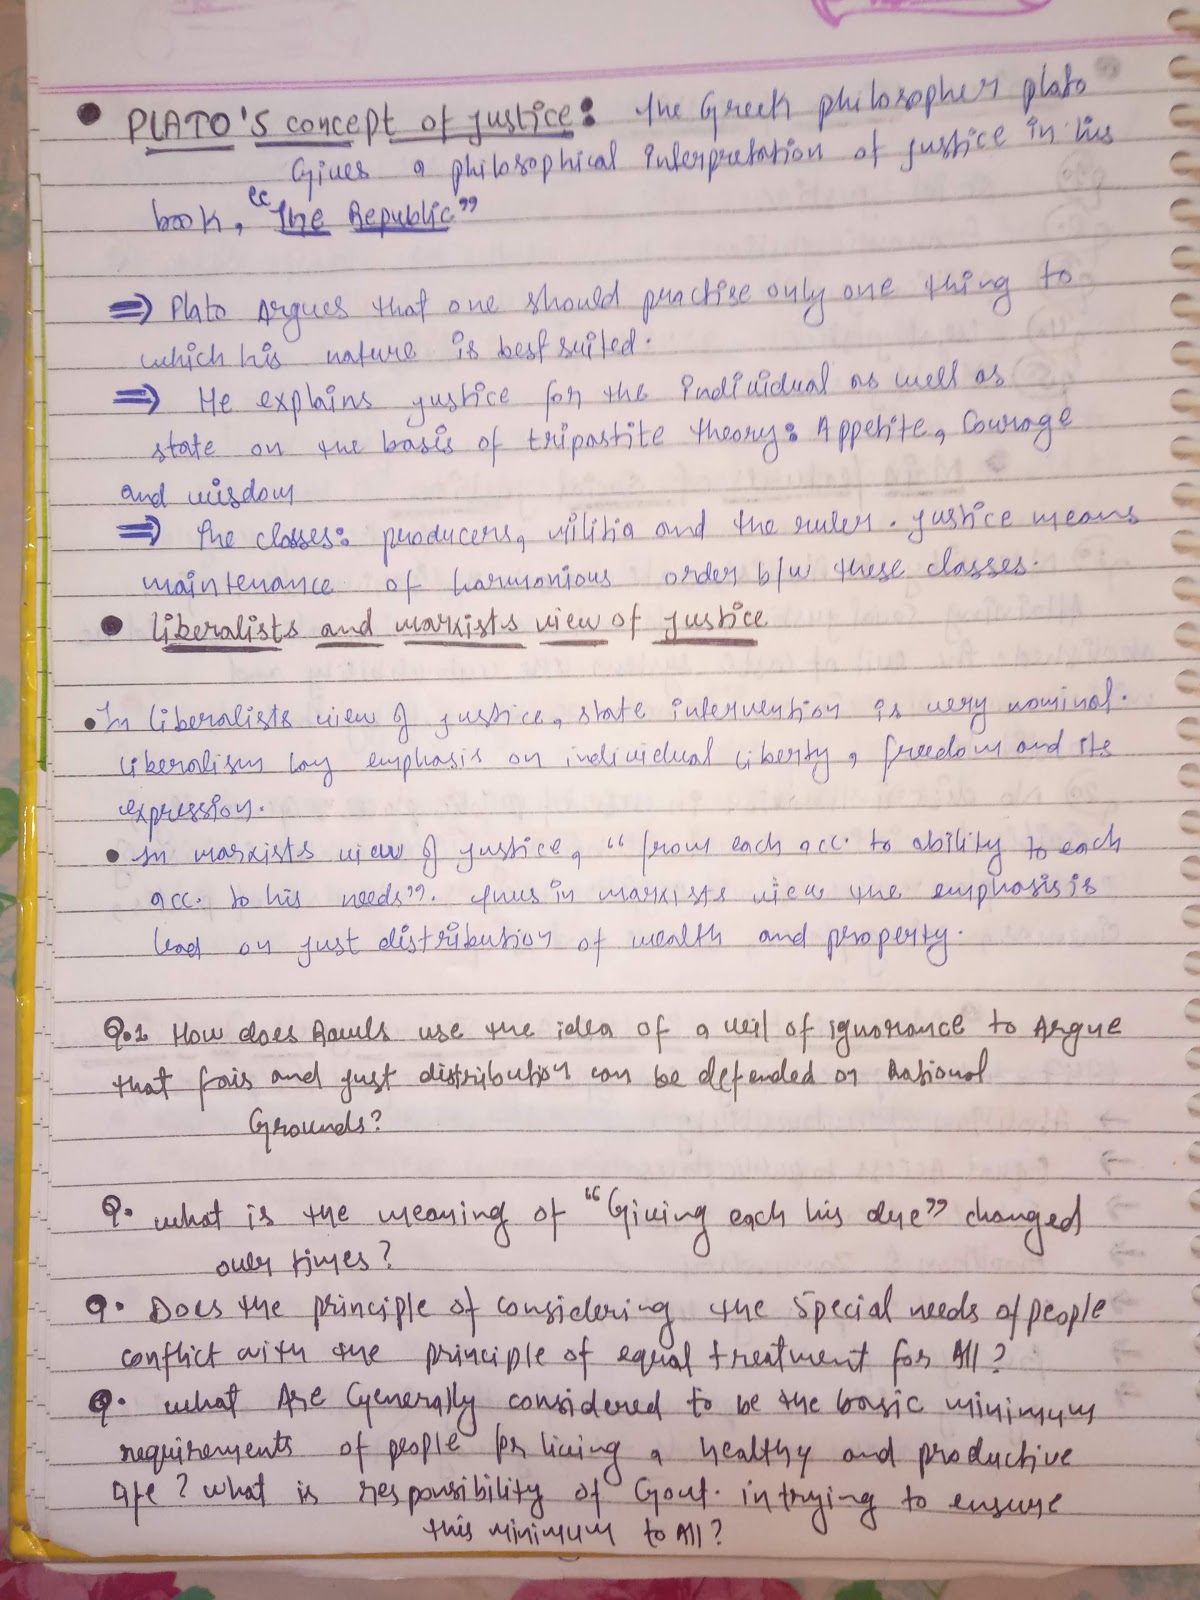 • PLATO'S concept of justice: The Greek philosopher plato
Gives a philosophical interpretation of justice in his
book, "The Republic"
⇒ Plato Argues that one should practise only one thing to
which his nature is best suited.
⇒ He explains justice for the individual as well as
state on the basis of tripartite theory: Appetite, Courage
and wisdom
⇒ The classes: producers, Militia and the ruler. justice means
maintenance of harmonious order b/w these classes.
• liberalists and marxists view of justice
• In liberalists view of justice, state intervention is very nominal.
liberalism lay emphasis on individual liberty, freedom and its
expression.
• In marxists view of justice, "from each acc. to ability to each
acc. to his needs". Thus in marxists view the emphasis is
lead on just distribution of wealth and property.
Q.1 How does Rawls use the idea of a veil of ignorance to Argue
that fair and just distribution can be defended on Rational
Grounds?
Q. what is the meaning of "Giving each his due" changed
over times?
Q. Does the principle of considering the special needs of people
conflict with the principle of equal treatment for All?
Q. what Are Generally considered to be the basic minimum
requirements of people for living a healthy and productive
life? what is responsibility of Govt. in trying to ensure
this minimum to All?